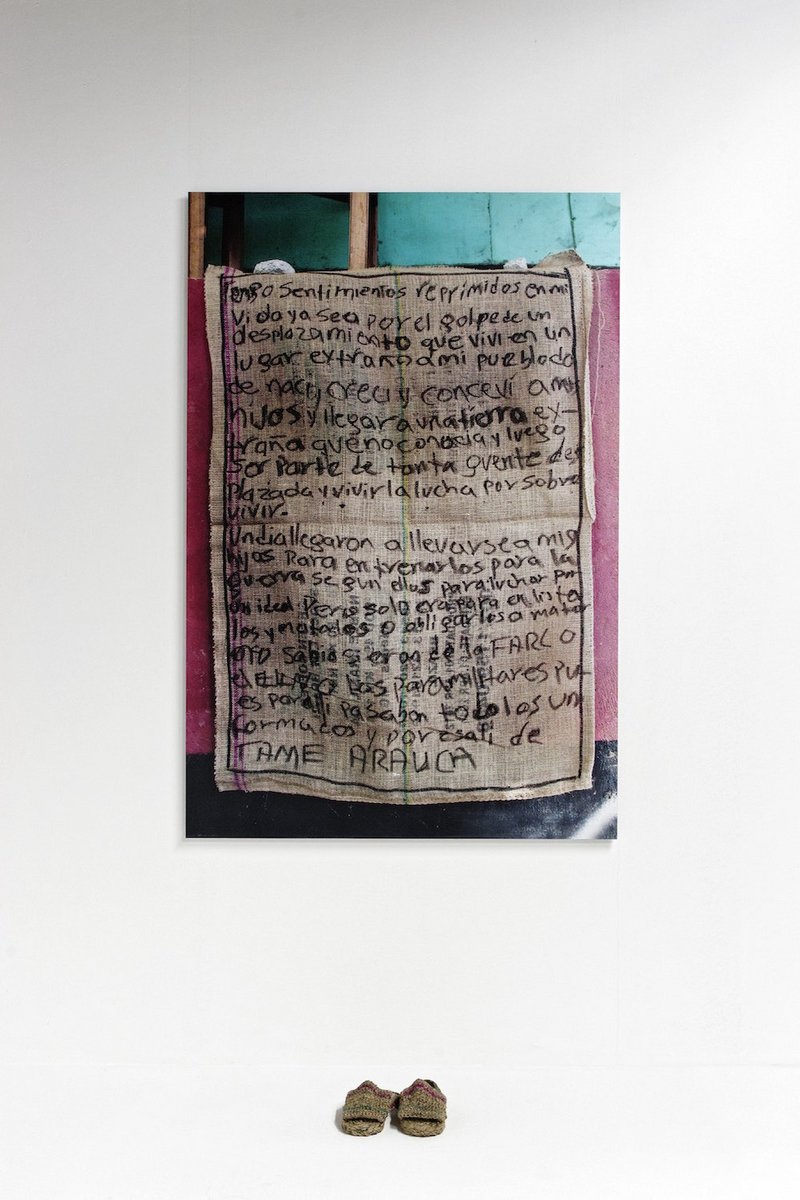 Tengo Sentimientos reprimidos en mi
vida ya sea por el golpe de un
desplazamiento que vivi en un
lugar extraño a mi pueblo do
de naci, creci y concevi a mis
hijos y llegar a una tierra ex-
traña que no conocia y luego
ser parte de tanta guente des
plazada y vivir la lucha por sobre
vivir.
Un dia llegaron a llevarse a mis
hijos para entrenarlos para la
guerra segun ellos para luchar por
un ideal Pero solo era para en lista
los y matarlos o obligarlos a matar
yo no sabia si eran de la FARC O
el ELN O los paramilitares Pu
es por alli pasaban todos los uni
formados y por eso sali de
TAME ARAUCA